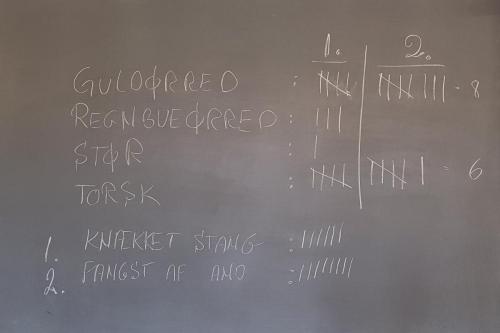 1. 2.
GULDØRRED : 𝍸 𝍸 ||| = 8
REGNBUEØRRED : |||
STØR : |
TORSK : 𝍸 𝍸 | = 6
1. KNÆKKET STANG : ||||||
2. FANGST AF AND : ||||||||